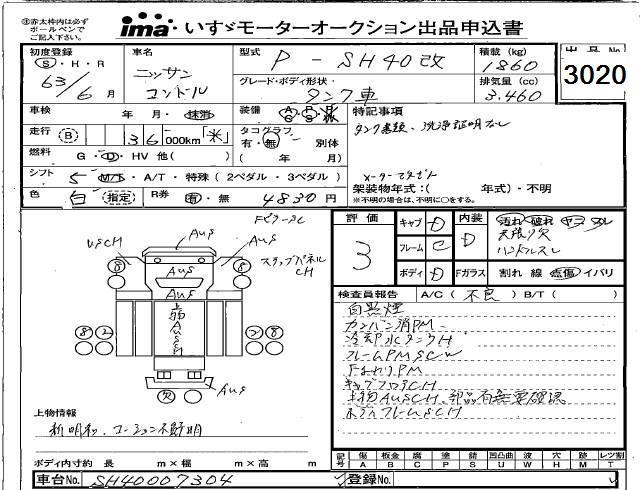 ※赤太枠内は必ず
ボールペンで
ご記入下さい。
ima いすゞモーターオークション出品申込書
初度登録
S・H・R
63/6 月
車名
ニッサン
コンドル
型式
P-SH40改
グレード・ボディ形状
タンク車
積載 (kg)
1860
排気量 (cc)
3.460
出品 No
3020
車検 年・月・抹消
装備
特記事項
タンク書類、洗浄証明なし
走行 B 36,000km 「米」
タコグラフ
有・無 別体
( 年 月)
燃料 G・D・HV 他( )
シフト 5 M/T・A/T・特殊 (2ペダル・3ペダル)
架装物年式:( 年式)・不明
※不明の場合は、不明に○をする。
色 白 (指定) R券 有・無 4830 円
評価
3
キャブ D
フレーム C
ボディ D
内装 D
汚れ 破れ ヤニ スレ
天張り欠
Fガラス 割れ 線 点傷 イバリ
検査員報告 A/C( 不良 ) B/T( )
白黒煙
カンバン消PM
冷却水タンクH
フレームPMSCW
下まわりPM
キャブフロアCH
上物AUSCH、部品有無要確認
ボディフレームUSCH
USCH
ステップパネル
CH
AUS
AUS
AUS
AUS
8
8
8
2
2
8
欠
上物情報
新明和、コーション不鮮明
ボディ内寸約 長 m×幅 m×高 m
記号 傷 板金 腐 塗 錆 凹凸曲 波 穴 跡 レツ割
A B C P S U W H M T
車台No. SH40007304
登録No.